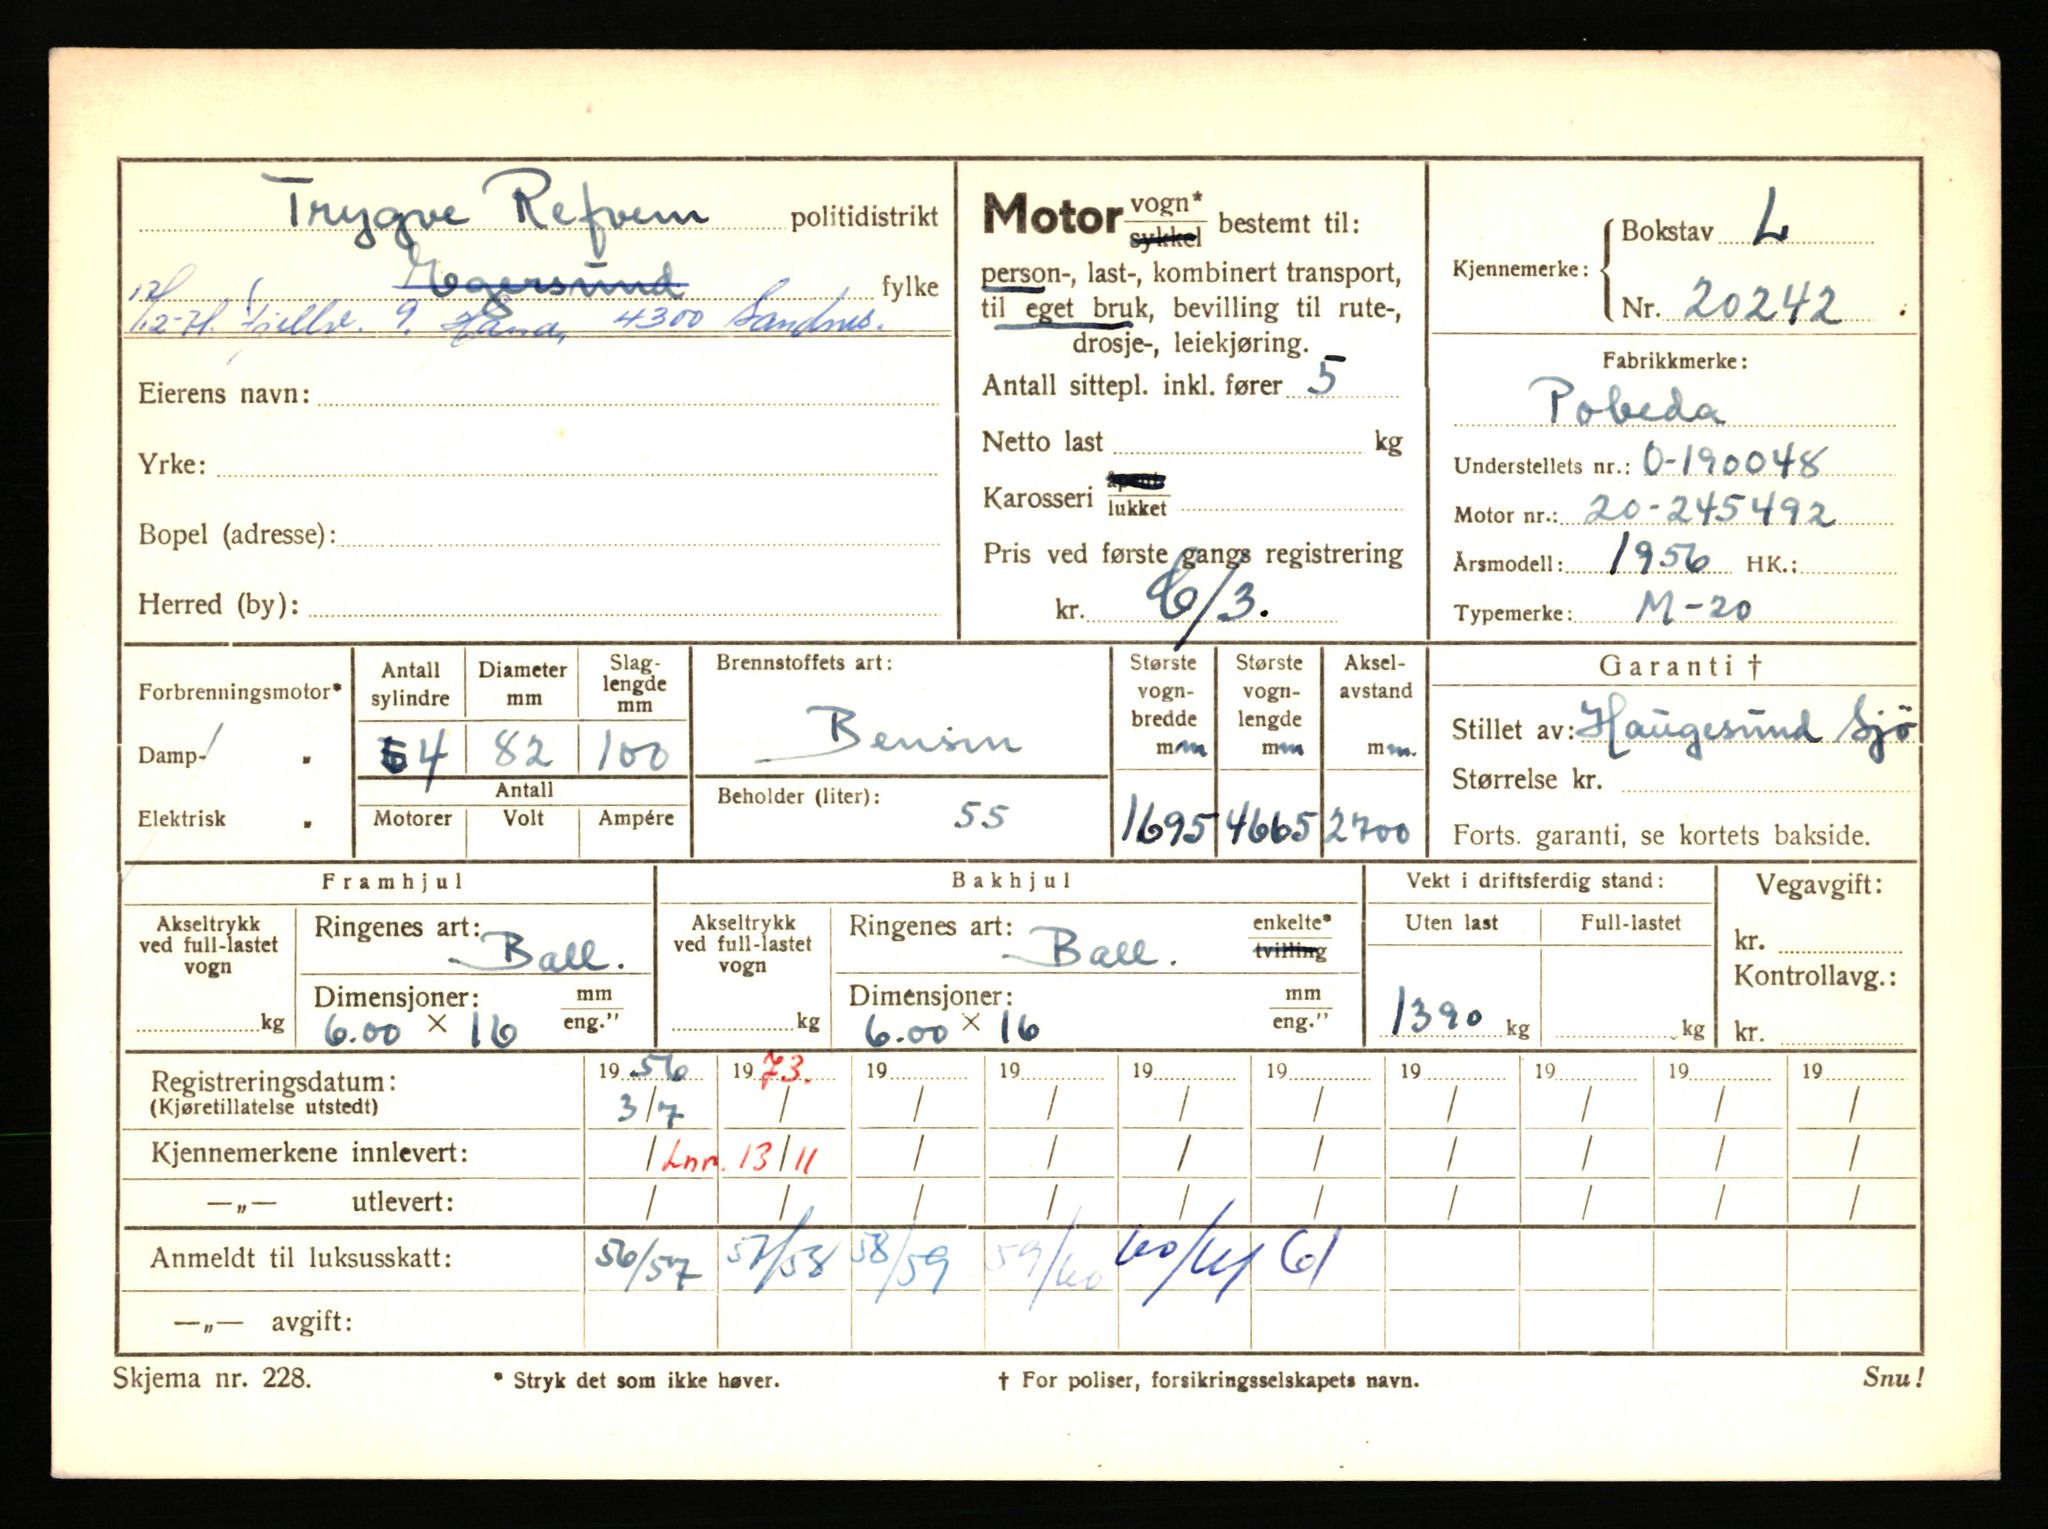 Trygve Refvem politidistrikt
Egersund fylke
12-71. Fjellv. 9. Hana, 4300 Sandnes.
Eierens navn:
Yrke:
Bopel (adresse):
Herred (by):
Motor vogn* sykkel bestemt til:
person-, last-, kombinert transport,
til eget bruk, bevilling til rute-,
drosje-, leiekjøring.
Antall sittepl. inkl. fører 5
Netto last kg
Karosseri åpent lukket
Pris ved første gangs registrering
kr. 6/3.
Kjennemerke: Bokstav L
Nr. 20242
Fabrikkmerke:
Pobeda
Understellets nr.: 0-190048
Motor nr.: 20-245492
Årsmodell: 1956 HK.:
Typemerke: M-20
Forbrenningsmotor*
Damp- "
Elektrisk "
Antall sylindre Diameter mm Slaglengde mm
4 82 100
Antall
Motorer Volt Ampére
Brennstoffets art:
Bensin
Beholder (liter): 55
Største vogn-bredde mm Største vogn-lengde mm Aksel-avstand mm.
1695 4665 2700
Garanti †
Stillet av: Haugesund Sjö
Størrelse kr.
Forts. garanti, se kortets bakside.
Framhjul
Akseltrykk ved full-lastet vogn kg
Ringenes art: Ball.
Dimensjoner: mm eng."
6.00 × 16
Bakhjul
Akseltrykk ved full-lastet vogn kg
Ringenes art: Ball. enkelte* tvilling
Dimensjoner: mm eng."
6.00 × 16
Vekt i driftsferdig stand:
Uten last Full-lastet
1390 kg kg
Vegavgift:
kr.
Kontrollavg.:
kr.
Registreringsdatum: 19 56 19 73. 19 19 19 19 19 19 19 19
(Kjøretillatelse utstedt) 3/7 / / / / / / / / /
Kjennemerkene innlevert: / Lnr. 13/11 / / / / / / / /
—„— utlevert: / / / / / / / / / /
Anmeldt til luksusskatt: 56/57 57/58 58/59 59/60 60/61 61
—„— avgift:
Skjema nr. 228. * Stryk det som ikke høver. † For poliser, forsikringsselskapets navn. Snu!